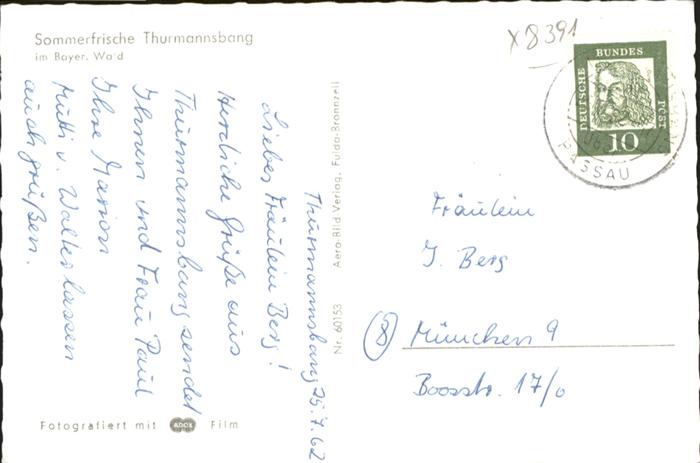 Sommerfrische Thurmannsbang
im Bayer. Wald
Thurmannsbang 25.7.62
Liebes Fräulein Berg!
Herzliche Grüße aus
Thurmannsbang sendet
Ihnen und Frau Paul
Ihre Marion
Mutti u. Walter lassen
auch grüßen.
Fotografiert mit ADOX Film
Nr. 60153 Aero-Bild Verlag, Fulda-Bronnzell
x8391
DEUTSCHE BUNDESPOST
10
PASSAU
Fräulein
J. Berg
(8) München 9
Boosstr. 17/0